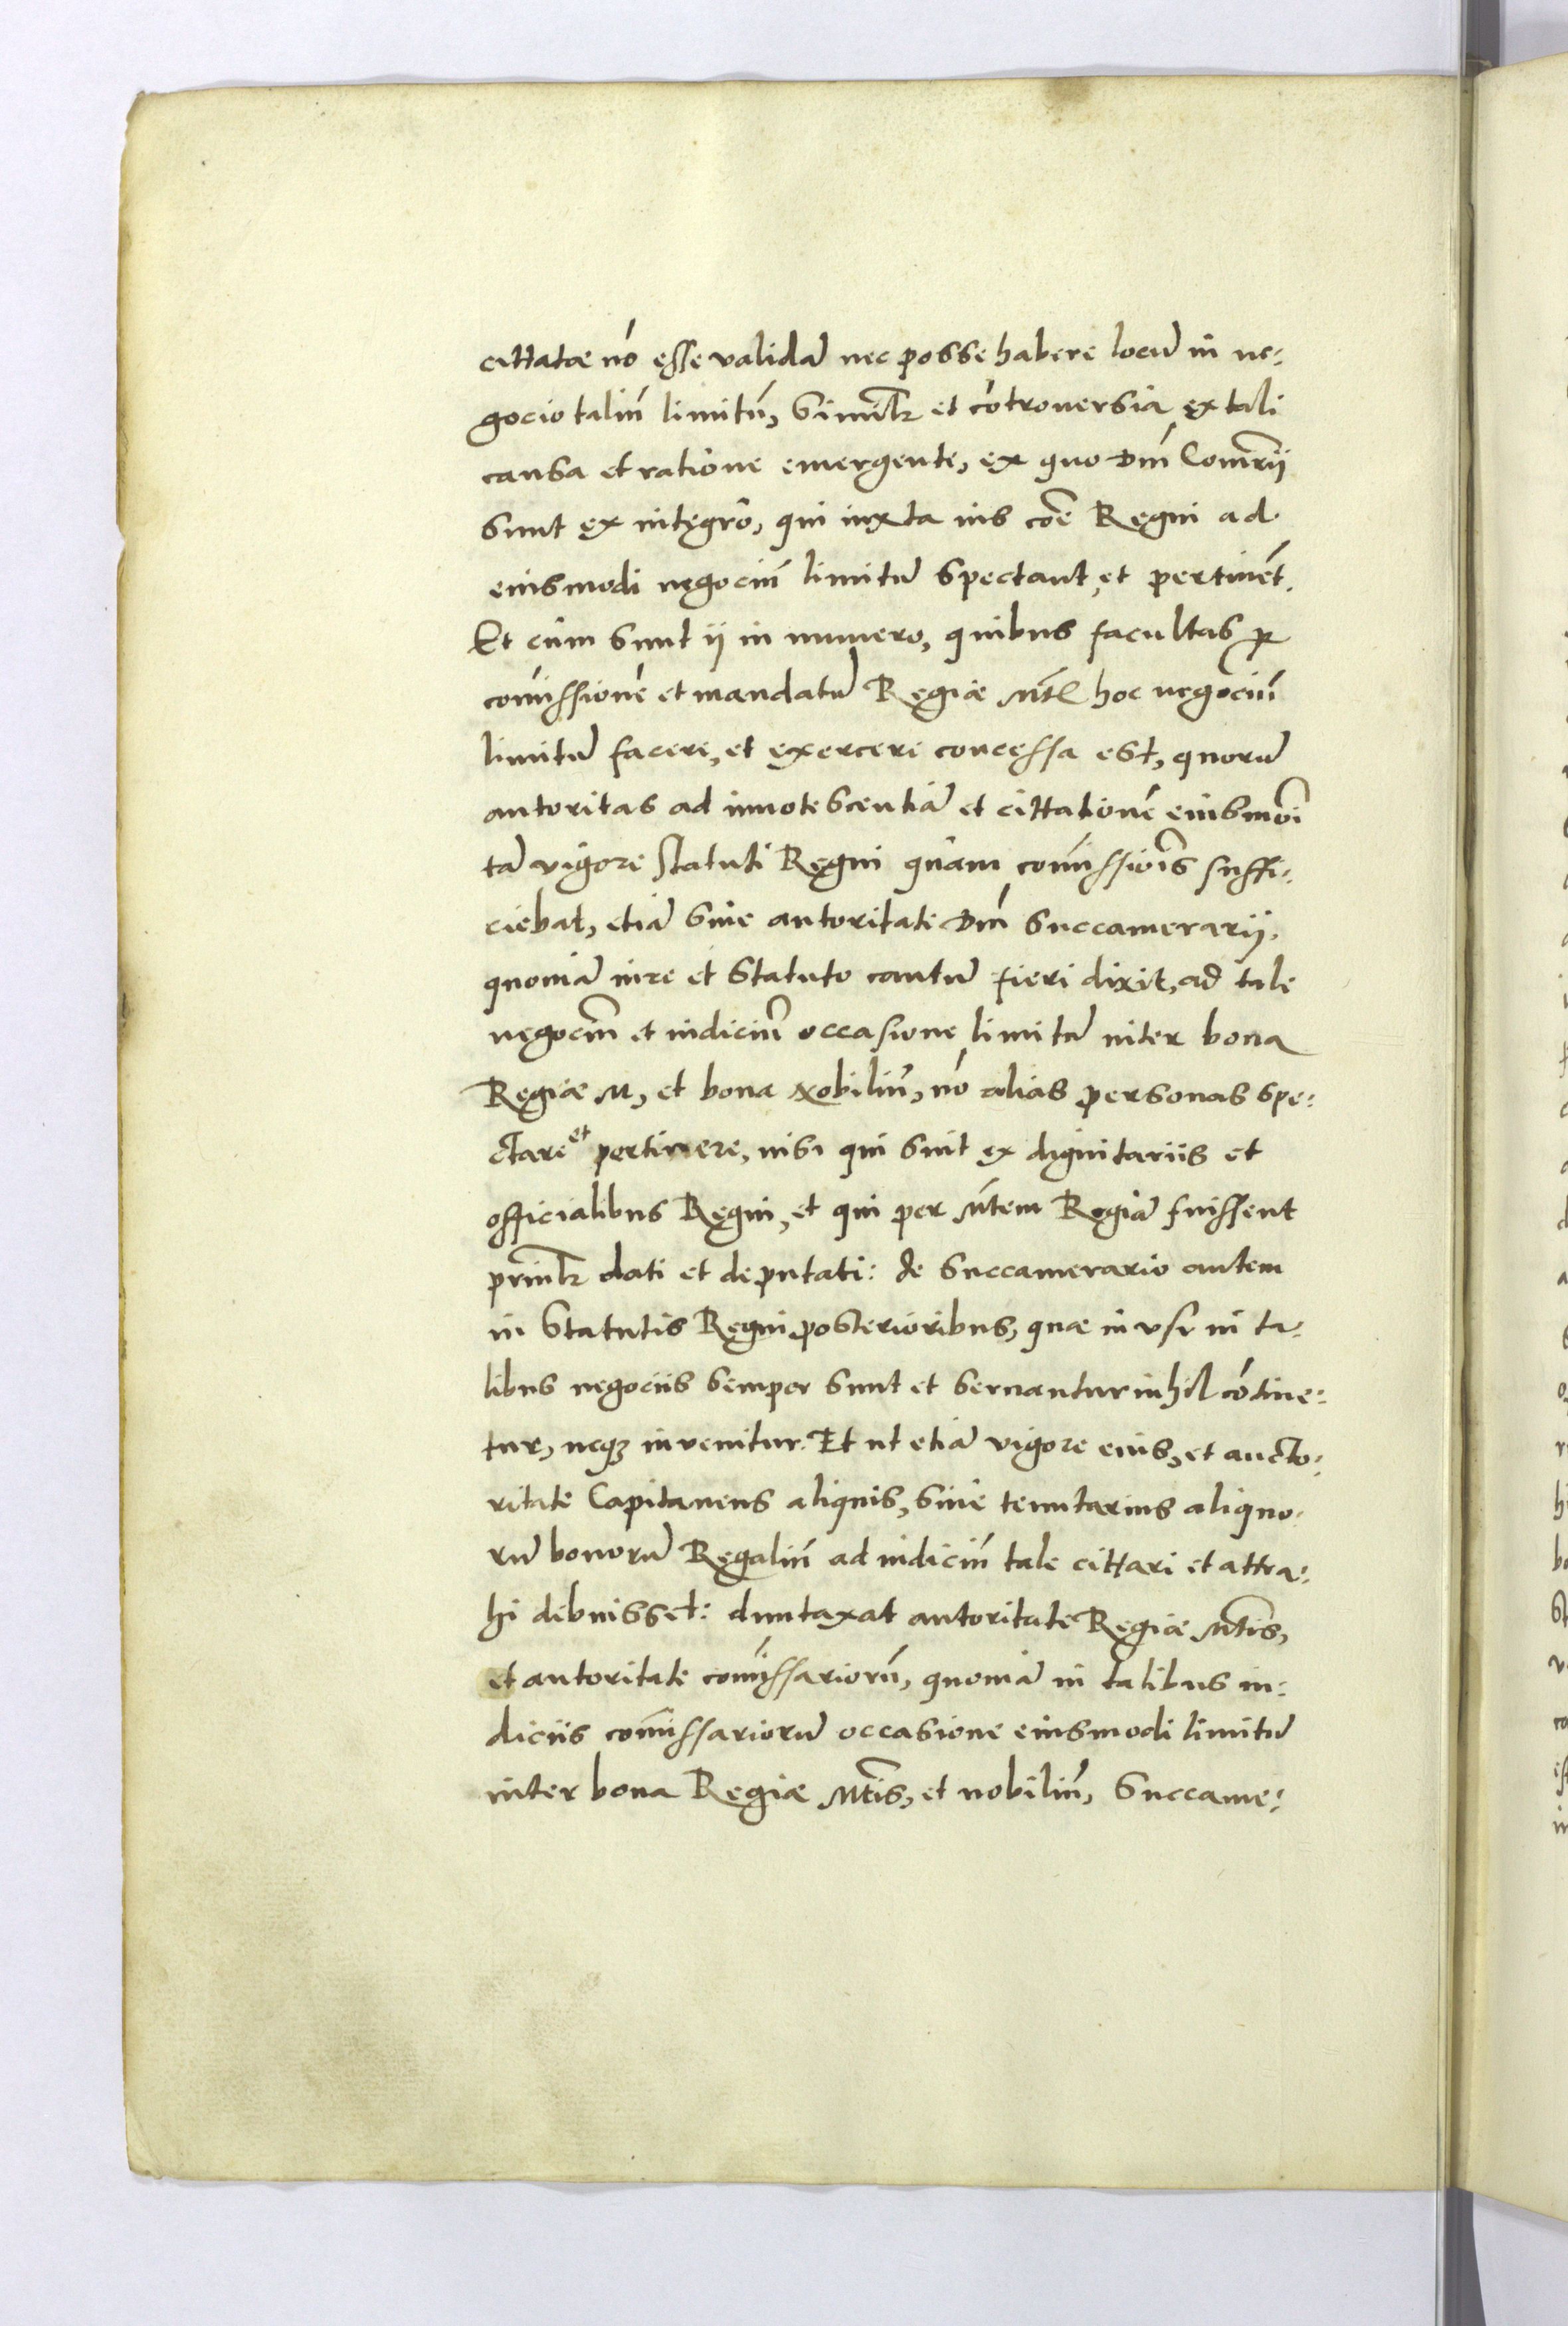 cittatae nõ esse validã nec posse habere locũ in ne:
gocio taliũ limitũ, similr et cõtrouersia ex tali
causa et ratione emergente, ex quo Dnĩ Com̃rii
sunt ex integro, qui iuxta ius coẽ Regni ad
eiusmodi negociũ limitũ spectant, et pertinẽt.
Et cum sunt ij in numero, quibus facultas p
com̃issionẽ et mandatũ Regiae Mtĩs hoc negociũ
limitũ facere, et exercere concessa est, quorũ
autoritas ad innotescentiã et cittationẽ eiusmõi
tã vigore statuti Regni quam com̃issiõis suffi:
ciebat, etiã sine autoritate Dnĩ Succamerarij.
quoniã iure et statuto cautũ fieri dixit, ad tale
negociũ et iudiciũ occasione limitũ inter bona
Regiae M, et bona Nobiliũ, nõ alias personas spe:
ctare et pertinere, nisi qui sint ex dignitariis et
officialibus Regni, et qui per Mtẽm Regiã fuissent
prinlr dati et deputati: de Succamerario autem
in Statutis Regni posterioribus, quae in usu in ta:
libus negociis semper sunt et seruantur nihil cõtine:
tur, neq; invenitur. Et ut etiã vigore eius, et aucto:
ritate Capitaneus aliquis, siue tenutarius aliquo:
rũ bonorũ Regaliũ ad iudiciũ tale cittari et attra:
hi debuisset: duntaxat autoritate Regiae Mtĩs,
et autoritate com̃issariorũ, quoniã in talibus iu:
diciis com̃issariorũ occasione eiusmodi limitũ
inter bona Regiae Mtĩs, et nobiliũ, Succame: